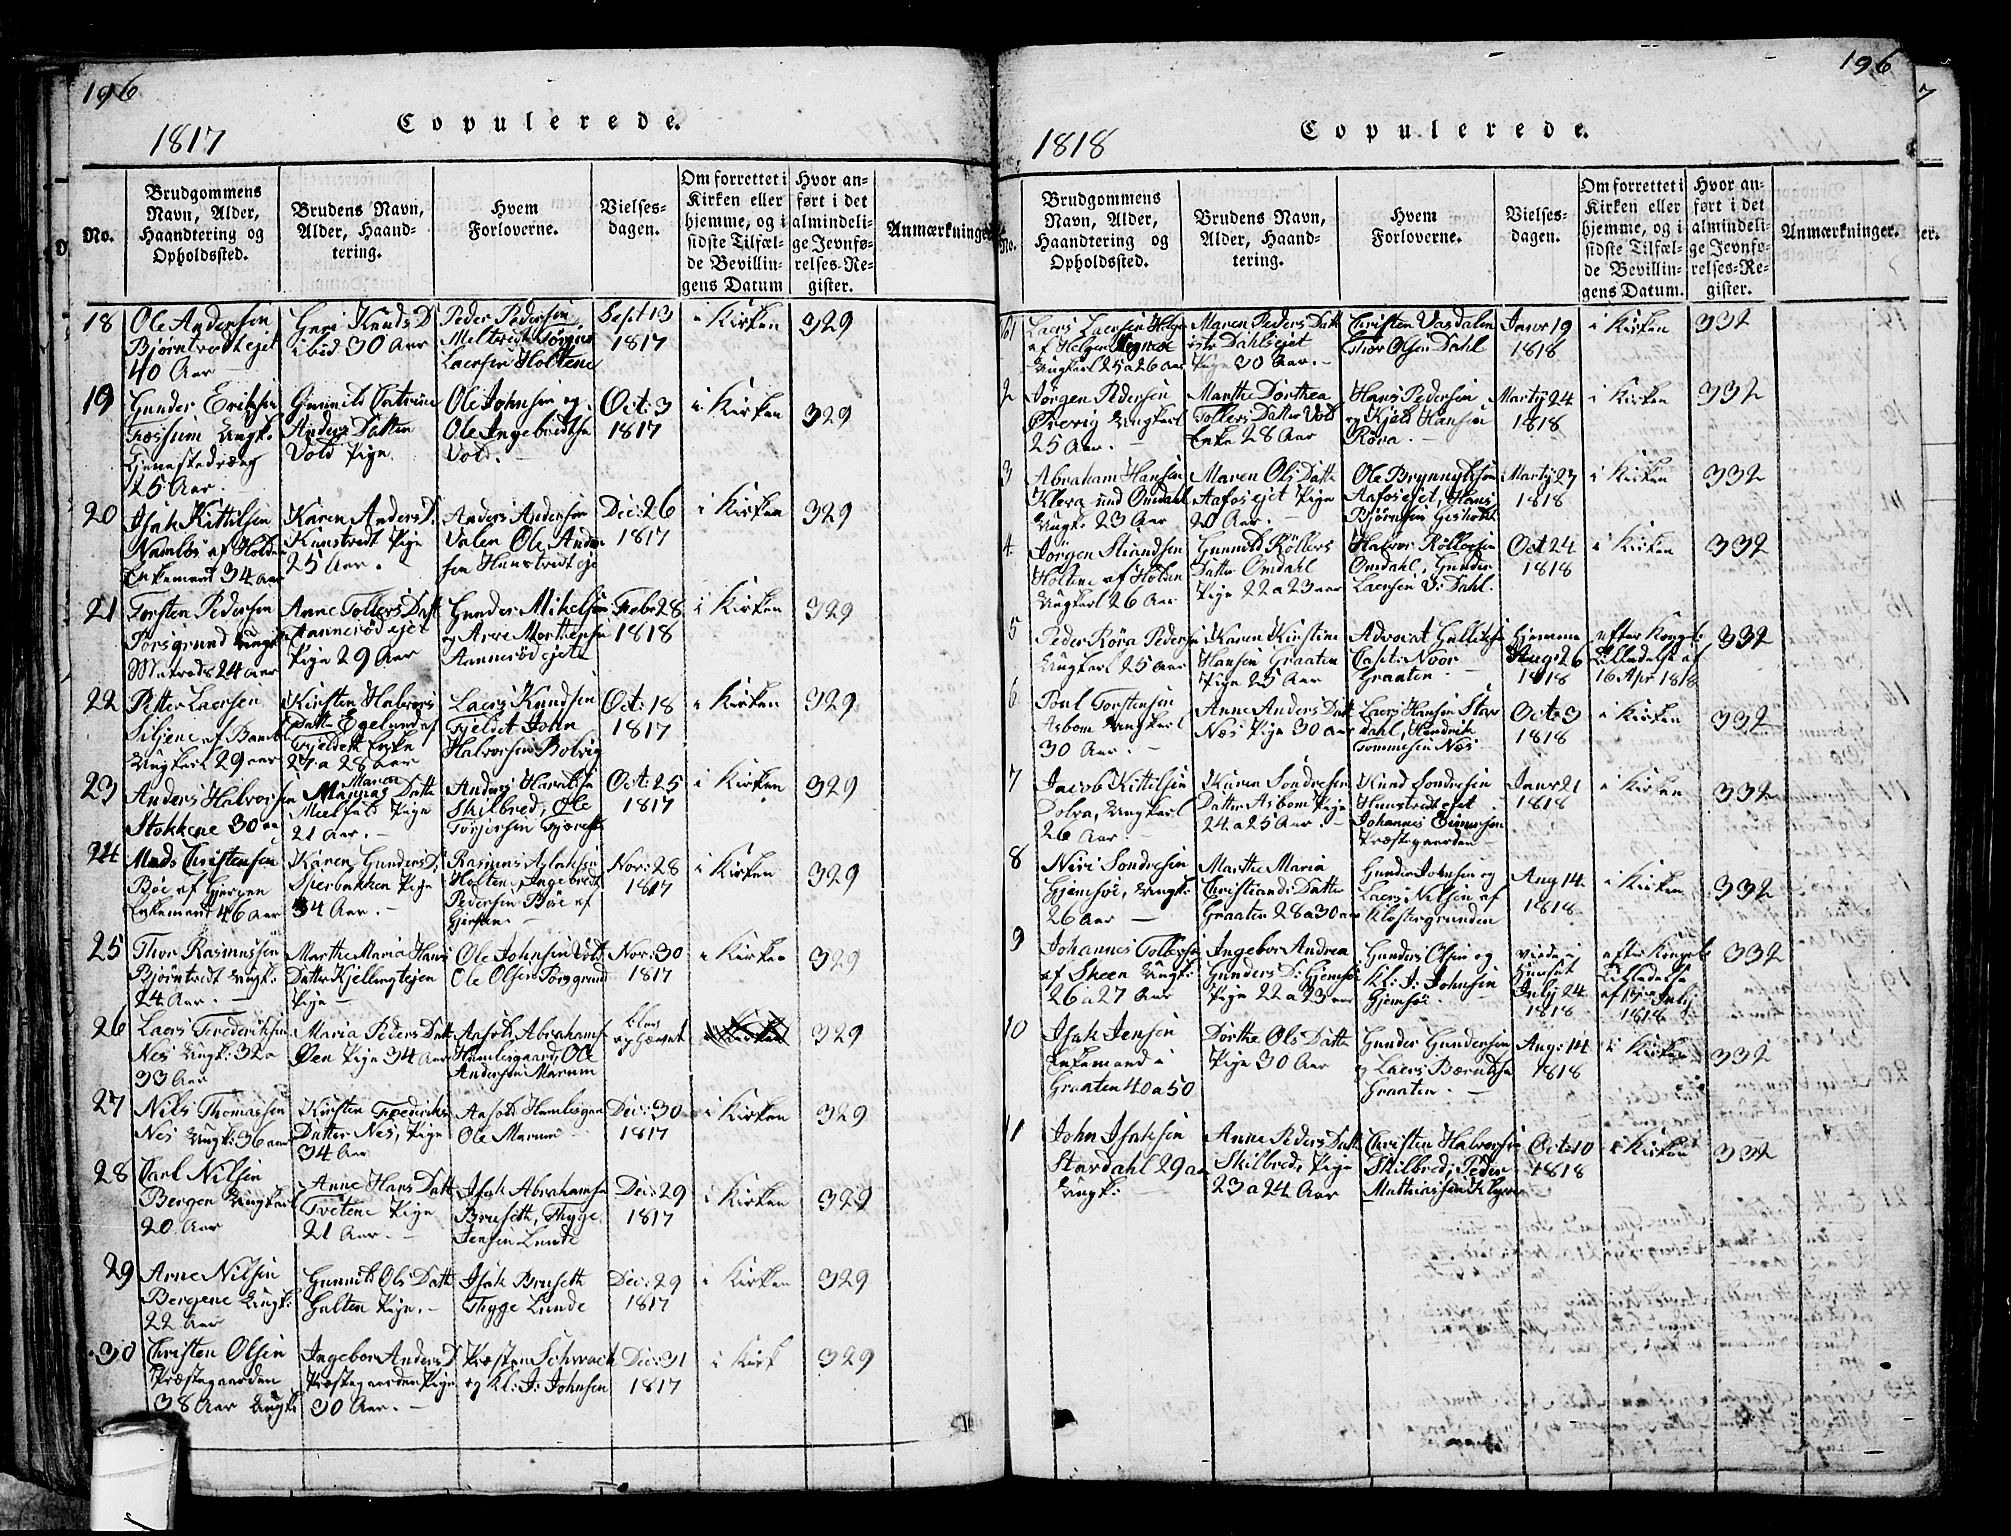 196
1817
Copulerede.
No.
Brudgommens
Navn, Alder,
Haandtering og
Opholdssted.
Brudens Navn,
Alder, Haand-
tering.
Hvem
Forloverne.
Vielses-
dagen.
Om forrettet i
Kirken eller
hjemme, og i
sidste Tilfæl-
de Bevillin-
gens Datum
Hvor an-
ført i det
almindeli-
ge Jevnfø-
relses-Re-
gister.
Anmærkninger
18
Ole Andersen
Bjørntvedt ejet
40 Aar
Guri Knuds D
ibid 30 Aar
Peder Pedersen
Jørgen
Laersen Holtene
Sept 13
1817
i Kirken
329
19
Gunder Erichsen
Fossum Ungk:
Tjenestedreng
25 Aar
Gunnild Catrine
Anders Datter
Vold Pige
Ole Johnsen og
Ole Ingebredtse
Vold.
Oct: 3
1817
i Kirken
329
20
Isak Kittilsen
Namløs af Holden
Enkemand 34 Aar
Karen Anders D.
Hunstvedt Pige
25 Aar.
Anders Andersen
Valen Ole Ander
sen Hunstvedt eje
Dec: 26
1817
i Kirken
329
21
Torsten Pedersen
Porsgrund Ungk
Matrods 24 aar
Anne Tollers Datt
Aannerød ejet
Pige 29 Aar
Gunder Mikelsen
og Arve Mortensen
Aannerød ejete
Febr 28
1818
i Kirken
329
22
Petter Laersen
Siljene af Bamble
Ungkarl 29 aar
Kirsten Halvors
Datter Egelund af
Gjeldett Enke
27 a 28 aar
Laers Knudsen
Fjelet John
Halvorsen Bolvig
Oct: 18
1817
i Kirken
329
23
Anders Halvorsen
Stokkene 30 aar
Maren
Magnas Datt
Melfald Pige
21 Aar.
Anders Haraldsen
Skilbred, Ole
Torjersen
Oct: 25
1817
i Kirken
329
24
Mads Christensen
Bøe af Gjerpen
Enkemand 46 Aar
Karen Gunders D:
Pige
34 Aar.
Rasmus Aslaksen
Holten, Ingebredt
Pedersen Bøe af
Gjerpen.
Nov: 28
1817
i Kirken
329
25
Thor Rasmussen
Bjørntvedt Ungk:
24 Aar.
Marthe Maria Hans
Datter Kjellingtejen
Pige
Ole Johnsen Vold
Ole Olsen Porsgrund
Nov: 30
1817
i Kirken
329
26
Laers Frederiksen
Nes Ungk: 32 a
33 Aar
Maria Peders Datt
Øen Pige 34 Aar
Aasold Abrahams
Humlegaard, Ole
Andersen Marum
blev
og Hævet
329
27
Nils Thomassen
Nes Ungk: 36 aar
Kirsten Frederiks
Datter Nes, Pige
34 Aar
Aasold Humlegaa
Ole Marum
Dec: 30
1817
i Kirken
329
28
Carl Nilsen
Bergen Ungkarl
20 Aar
Anne Hans Datt
Tvetene Pige
21 Aar.
Isak Abrahamse
Bruseth, Thyge
Jensen Lunde
Dec: 29
1817
i Kirken
329
29
Arne Nilsen
Bergene Ungk:
22 Aar
Gunnild Ols Datt
Gulten Pige.
Isak Bruseth
Thyge Lunde
Dec: 29
1817
i Kirken
329
30
Christen Olsen
Præstegaarden
38 Aar Ungk:
Ingebor Anders D
Præstegaarden Pige
30 Aar.
Præsten Schwach
og Kl: J: Johnsen
Dec: 31
1817
i Kirk
329
196
1818
Copulerede.
No.
Brudgommens
Navn, Alder,
Haandtering og
Opholdssted.
Brudens Navn,
Alder, Haand-
tering.
Hvem
Forloverne.
Vielses-
dagen.
Om forrettet i
Kirken eller
hjemme, og i
sidste Tilfæl-
de Bevillin-
gens Datum.
Hvor an-
ført i det
almindeli-
ge Jevnfø-
relses-Re-
gister.
Anmærkninger.
1
Laers Laersen
af Helgen Sogn
Ungkarl 25 a 26 aar
Maren Peders Datt
Dahlsejet
Pige 30 Aar.
Christen Vasdalen
Thor Olsen Dahl
Janr 19
1818
i Kirken
332
2
Jørgen Pedersen
Øvevig Ungkarl
25 Aar.
Marthe Dorthea
Tollers Datter Vold
Enke 28 Aar
Hans Pedersen
og Kjeld Hansen
Røra.
Martij 24
1818
i Kirken
332
3
Abraham Hansen
Klova und Omdahl
Ungk: 23 Aar
Maren Ols Datte
Aafos ejet Pige
20 Aar.
Ole Brynnylsen
Aafos ejet, Hans
Bjørnsen Gisholt
Martij 27
1818
i Kirken
332
4
Jørgen Strandsen
Holtene af Holden
Ungkarl 26 Aar
Gunnild Rollers
Datter Omdahl
Pige 22 a 23 aar
Halvor Rollersen
Omdahl, Gunder
Laersen V: Dahl.
Oct 24
1818
i Kirken
332
5
Peder Røra Pederse
Ungkarl 25 Aar
Karen Kirstine
Hansen Graaten
Pige 25 Aar
Advocat
Capt: Noor
Graaten.
hjemme
Aug: 26
1818
efter Kongl:
Tilladelse af
16 Apr 1818
332
6
Poul Torstensen
Asbom Ungkarl
30 Aar.
Anne Anders Datt
Nes Pige 30 aar
Laers Hansen Star
dahl, Hendrik
Tommesen Nes
Oct: 3
1818
i Kirken
332
7
Jacob Kittilsen
Dolva, Ungkarl
26 Aar
Karen Sondresen
Datter Asbom Pige
24 a 25 Aar.
Knud Sondresen
Hunstvedt ejet
Johannes Einersen
Præstegaarden
Janr 21
1818
i Kirken
332
8
Niri Sondresen
Gjemsøe, Ungk:
26 Aar
Marthe Maria
Christians Datter
Graaten 28 a 30 aar
Gunder Johnsen og
Laers Nilsen af
Klostergrunden
Aug 14
1818
i Kirken
332
9
Johannes Tollefse
af Skeen Ungk:
26 a 27 Aar
Ingebor Andrea
Gunders D: Gjemsø
Pige 22 a 23 aar
Gunder Olsen og
Kl: J: Johnsen
Gjemsøe.
viede i
Huuset
July 24
1818
efter Kongel
Tilladelse
af 13 July
1818
332
10
Isak Jensen
Enkemand i
Graaten 40 a 50
Dorthe Ols Datte
Pige 30 Aar
Gunder Gundersen
og Laers Berntse
Graaten.
Aug: 14
1818
i Kirken
332
11
John Isaksen
Stordahl 29 aar
Ungk:
Anne Peders Datt
Skilbred, Pige
23 a 24 Aar
Christen Halvorsen
Skilbred, Peder
Mathiassen Klyve
Oct: 10
1818
i Kirken
332